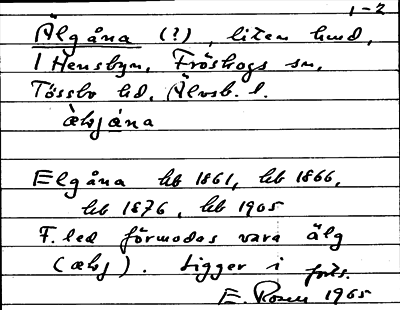 1-2
Älgåna (?), liten hmd,
I Hensbyn, Fröskogs sn,
Tössbo hd, Älvsb. l.
àlvjána
Elgåna hb 1861, hb 1866,
hb 1876, hb 1905
F. led förmodas vara älg
(ælvj). Ligger i forts.
E. Rosen 1965